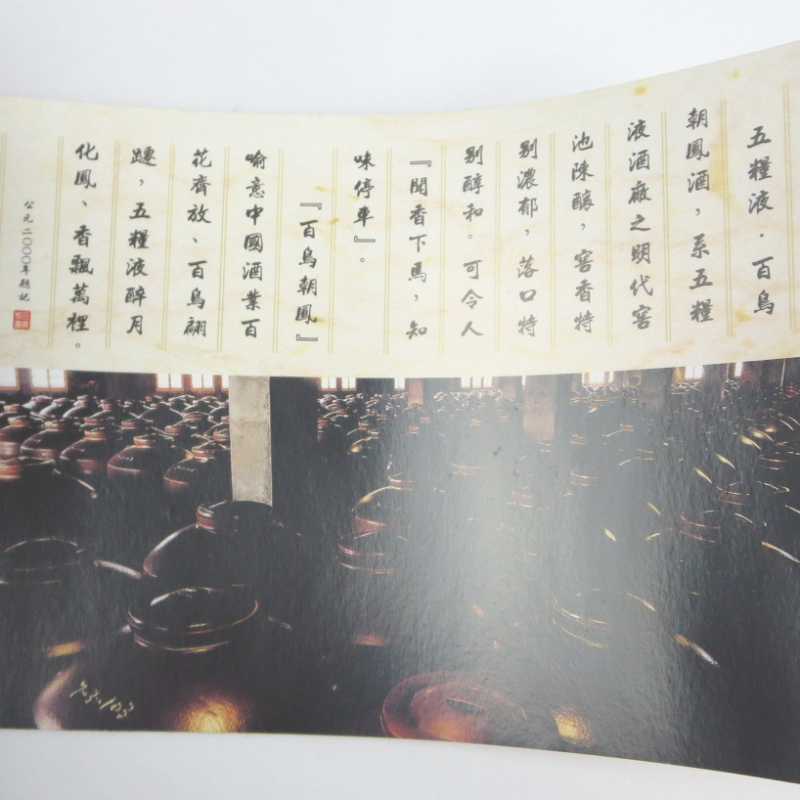 五糧液．百鳥
朝鳳酒，系五糧
液酒廠之明代窖
池陳釀，窖香特
别濃郁，落口特
别醇和。可令人
『聞香下馬，知
味停車』。
『百鳥朝鳳』
喻意中國酒業百
花齊放、百鳥翩
躚，五糧液醉月
化鳳、香飄萬裡。
公元二〇〇〇年題記